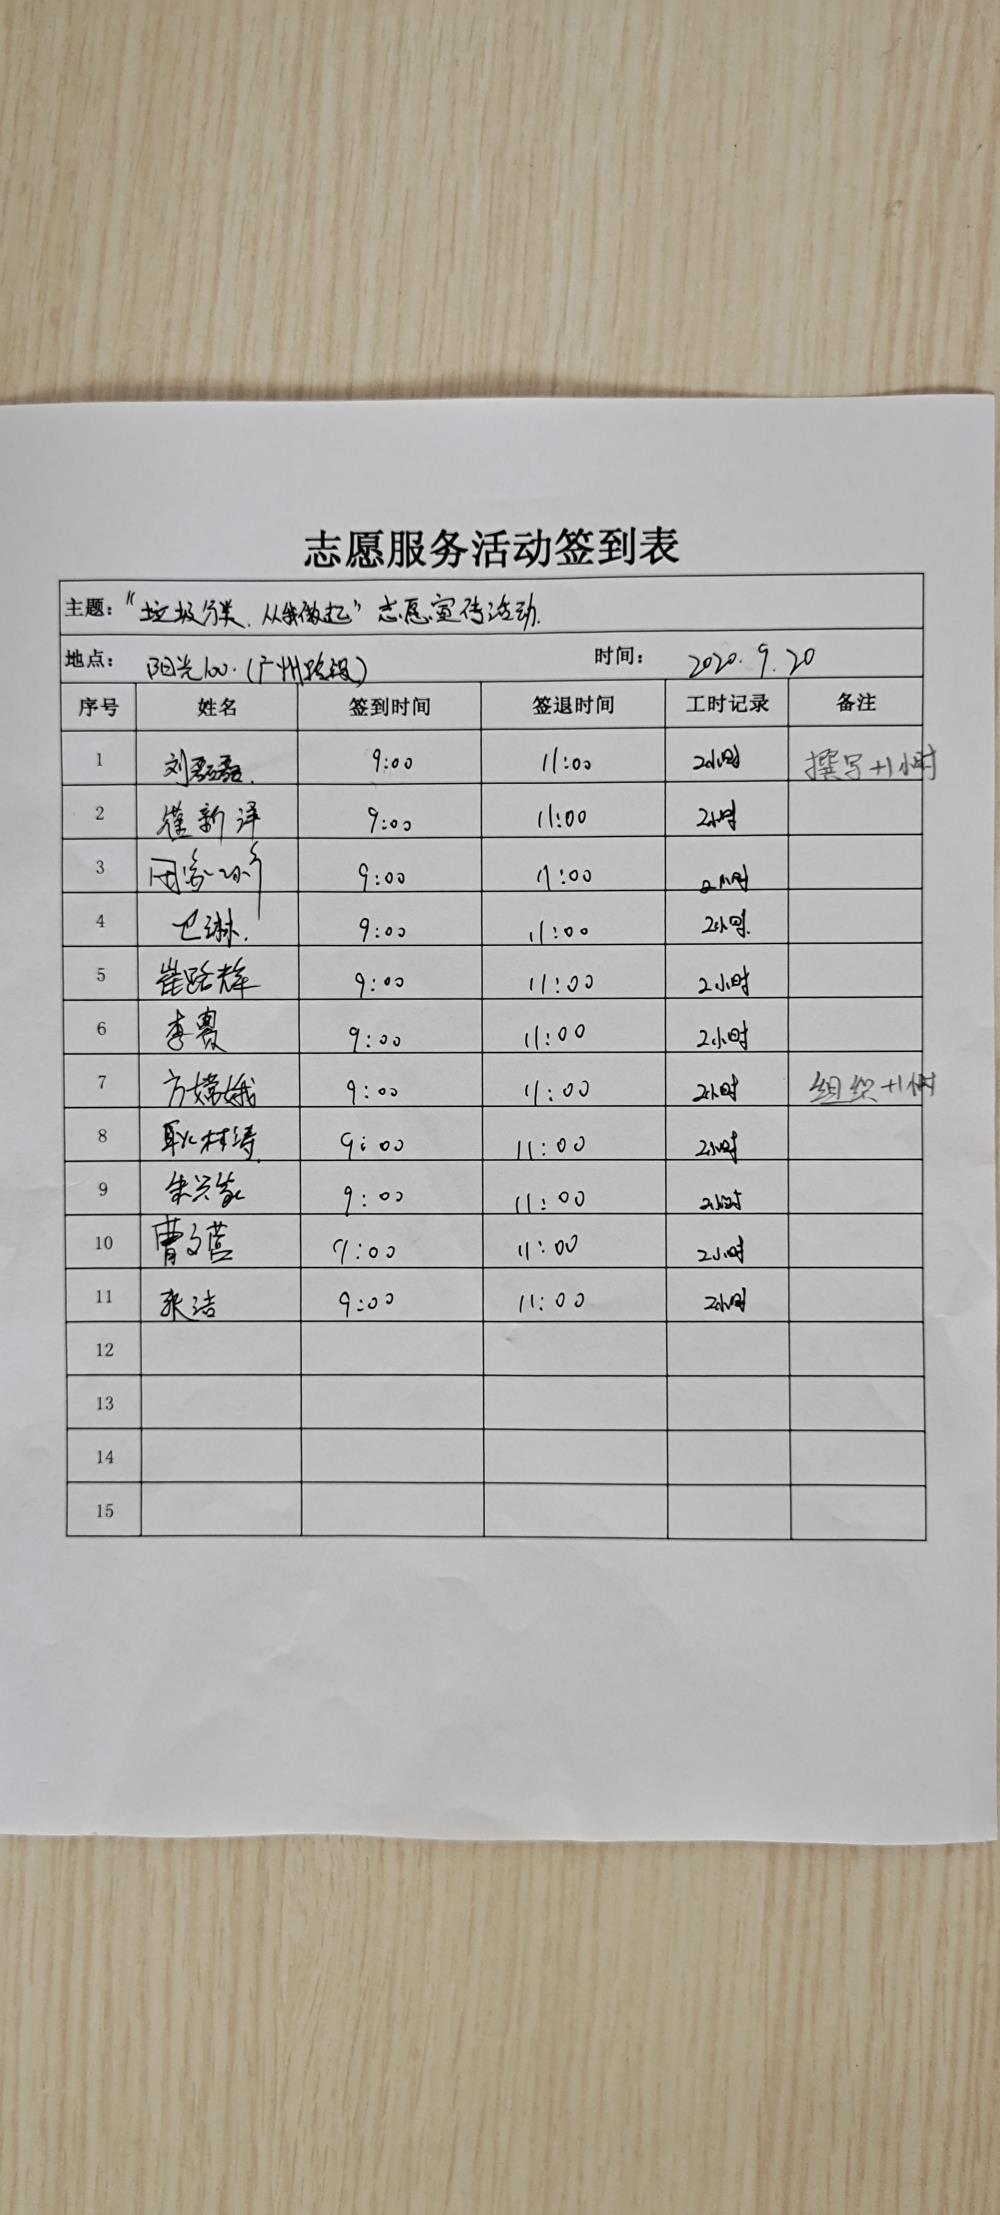 志愿服务活动签到表
主题：“垃圾分类、从我做起”志愿宣传活动.
地点： 阳光100.(广州路段) 时间： 2020.9.20
序号 姓名 签到时间 签退时间 工时记录 备注
1 刘磊磊. 9:00 11:00 2小时 撰写+1小时
2 崔新洋 9:00 11:00 2小时
3 9:00 11:00 2小时
4 巴琳. 9:00 11:00 2小时.
5 崔路辉 9:00 11:00 2小时
6 李霞 9:00 11:00 2小时
7 方嫦娥 9:00 11:00 2小时 组织+1小时
8 耿林涛 9:00 11:00 2小时
9 朱兴 9:00 11:00 2小时
10 曹文营 9:00 11:00 2小时
11 张洁 9:00 11:00 2小时
12
13
14
15